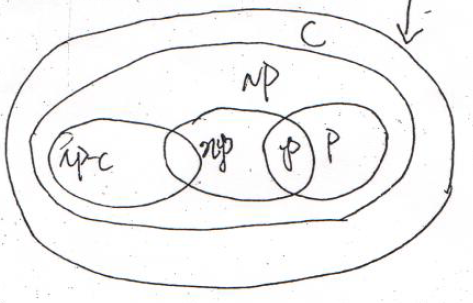 C
NP
np-c
np
p
P